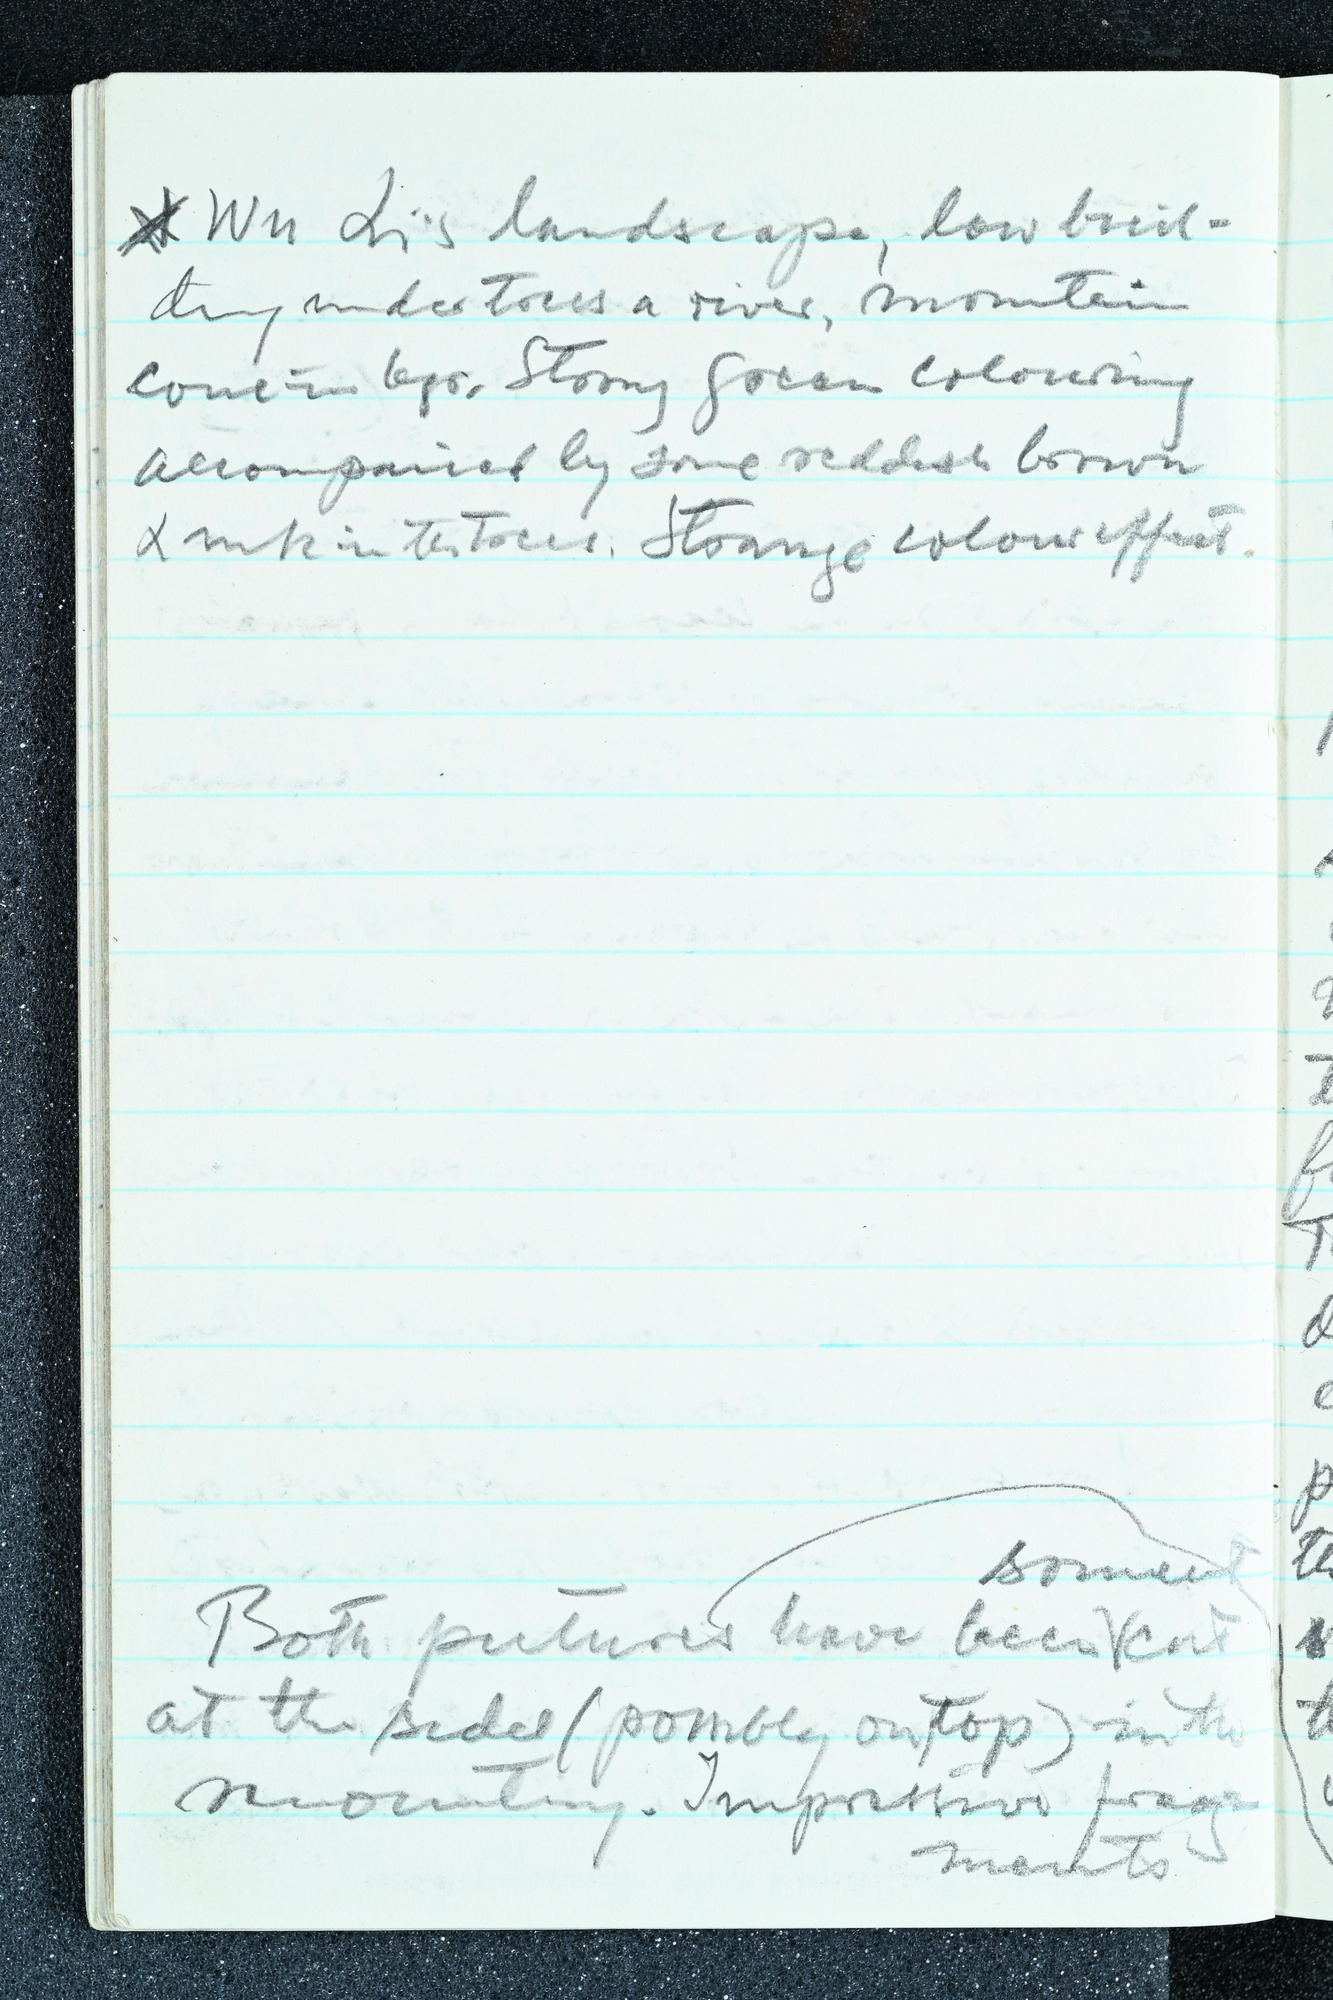 * Wu Li's landscape, low buil-
ding under trees a river, mountain
cone in bgr. Strong green colouring
accompanied by some reddish brown
& ink in the trees. Strange colour effect.
somewt
Both pictures have been cut
at the sides (possibly on top) in the
mounting. Impressive frag-
ments